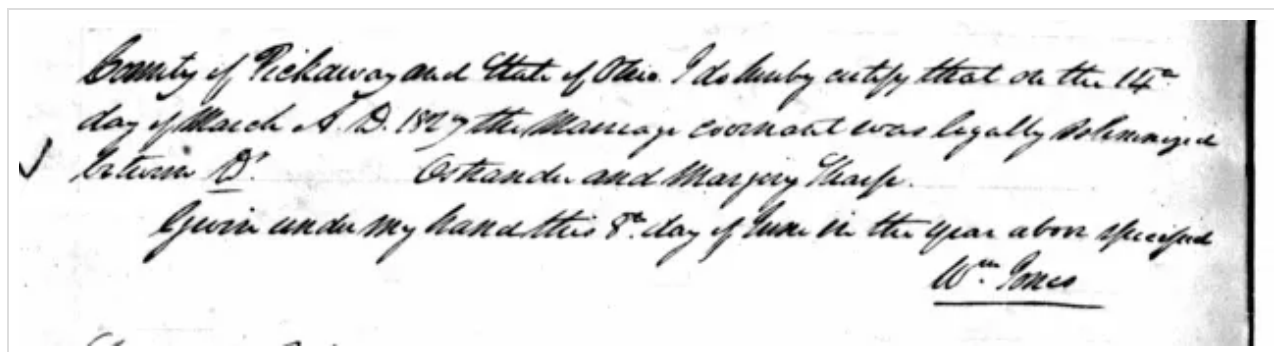 County of Pickaway and State of Ohio I do hereby certify that on the 14th
day of March A.D. 1827 the Marriage covenant was legally solemnized
between Dr. Ostrander and Margery Tharp.
Given under my hand this 8th day of June in the year above specified
Wm Jones